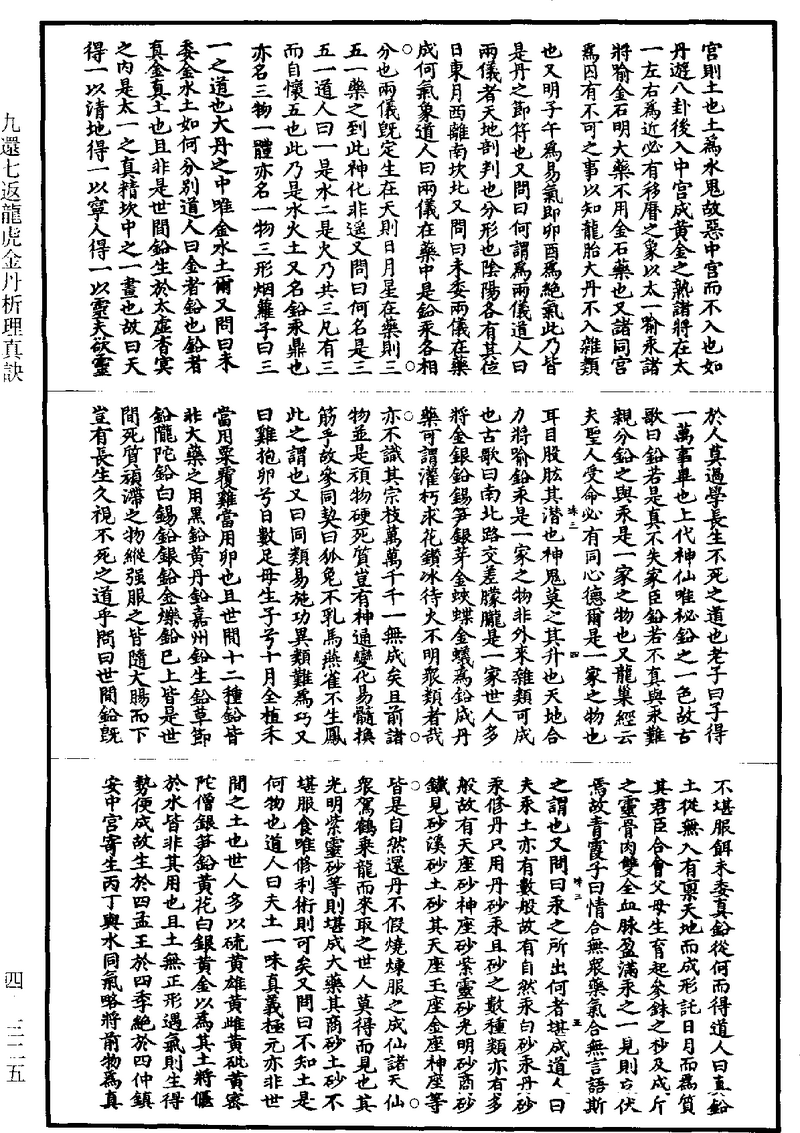 宫則土也土為水鬼故惡中宫而不入也如
丹遊八卦後入中宫成黃金之熟諸將在太
一左右為近必有移曆之象以太一喻汞諸
將喻金石明大藥不用金石藥也又諸同宫
為囚有不可之事以知龍胎大丹不入雜類
也又明子午為易氣即卯酉為絕氣此乃皆
是丹之節符也又問曰何謂為兩儀道人曰
兩儀者天地剖判也分形也陰陽各有其位
日東月西離南坎北又問曰未委兩儀在藥
成何氣象道人曰兩儀在藥中是鉛汞各相
分也兩儀既定生在天則日月星在藥則三
五一藥之到此神化非遥又問曰何名是三
五一道人曰一是水二是火乃共三凡有三
而自懷五也此乃是水火土又名鉛汞鼎也
亦名三物一體亦名一物三形烟蘿子曰三
一之道也大丹之中唯金水土爾又問曰未
委金水土如何分別道人曰金者鉛也鉛者
真金真土也且非是世間鉛生於太虛杳冥
之内是太一之真精坎中之一畫也故曰天
得一以清地得一以寧人得一以靈夫欲靈
於人莫過學長生不死之道也老子曰子得
一萬事畢也上代神仙唯祕鉛之一色故古
歌曰鉛若是真不失家臣鉛若不真與汞難
親分鉛之與汞是一家之物也又龍巢經云
夫聖人受命必有同心德爾是一家之物也
耳目股肱其潜也神鬼莫之其升也天地合
力將喻鉛汞是一家之物非外來雜類可成
也古歌曰南北路交差朦朧是一家世人多
將金銀鉛錫笋銀芽金蛺蝶金蟻為鉛成丹
藥可謂灌朽求花鑽冰待火不明衆類者哉
亦不識其宗枝萬萬千千一無成矣且前諸
物並是頑物硬死質豈有神通變化易髓换
筋乎故參同契曰狐兔不乳馬燕雀不生鳳
此之謂也又曰同類易施功異類難為巧又
曰雞抱卵兮日數足母生子兮十月全植禾
當用粟覆雞當用卵也且世間十二種鉛皆
非大藥之用黑鉛黄丹鉛嘉州鉛生鉛草節
鉛隴陀鉛白錫鉛銀鉛金爍鉛已上皆是世
間死質頑滯之物縱强服之皆隨大腸而下
豈有長生久視不死之道乎問曰世間鉛既
不堪服餌未委真鉛從何而得道人曰真鉛
土從無入有禀天地而成形託日月而為質
其君臣合會父母生育起參銖之杪及成斤
之靈骨肉雙全血脉盈滿汞之一見則立伏
焉故青霞子曰情合無衆藥氣合無言語斯
之謂也又問曰汞之所出何者堪成道人曰
夫汞土亦有數般故有自然汞白砂汞丹砂
汞修丹只用丹砂汞且砂之數種類亦有多
般故有天座砂神座砂紫靈砂光明砂商砂
鐵見砂溪砂土砂其天座玉座金座神座等
皆是自然還丹不假燒煉服之成仙諸天仙
衆駕鶴乘龍而來取之世人莫得而見也其
光明紫靈砂等則堪成大藥其商砂土砂不
堪服食唯修利術則可矣又問曰不知土是
何物也道人曰夫土一味真義極元亦非世
間之土也世人多以硫黄雄黄雌黄砒黄密
陀僧銀笋鉛黄花白銀黄金以為其土將偃
於水皆非其用也且土無正形遇氣則生得
勢便成故生於四孟王於四季絕於四仲鎮
安中宫寄生丙丁與水同氣略將前物為真
九還七返龍虎金丹析理真訣
四
三二五